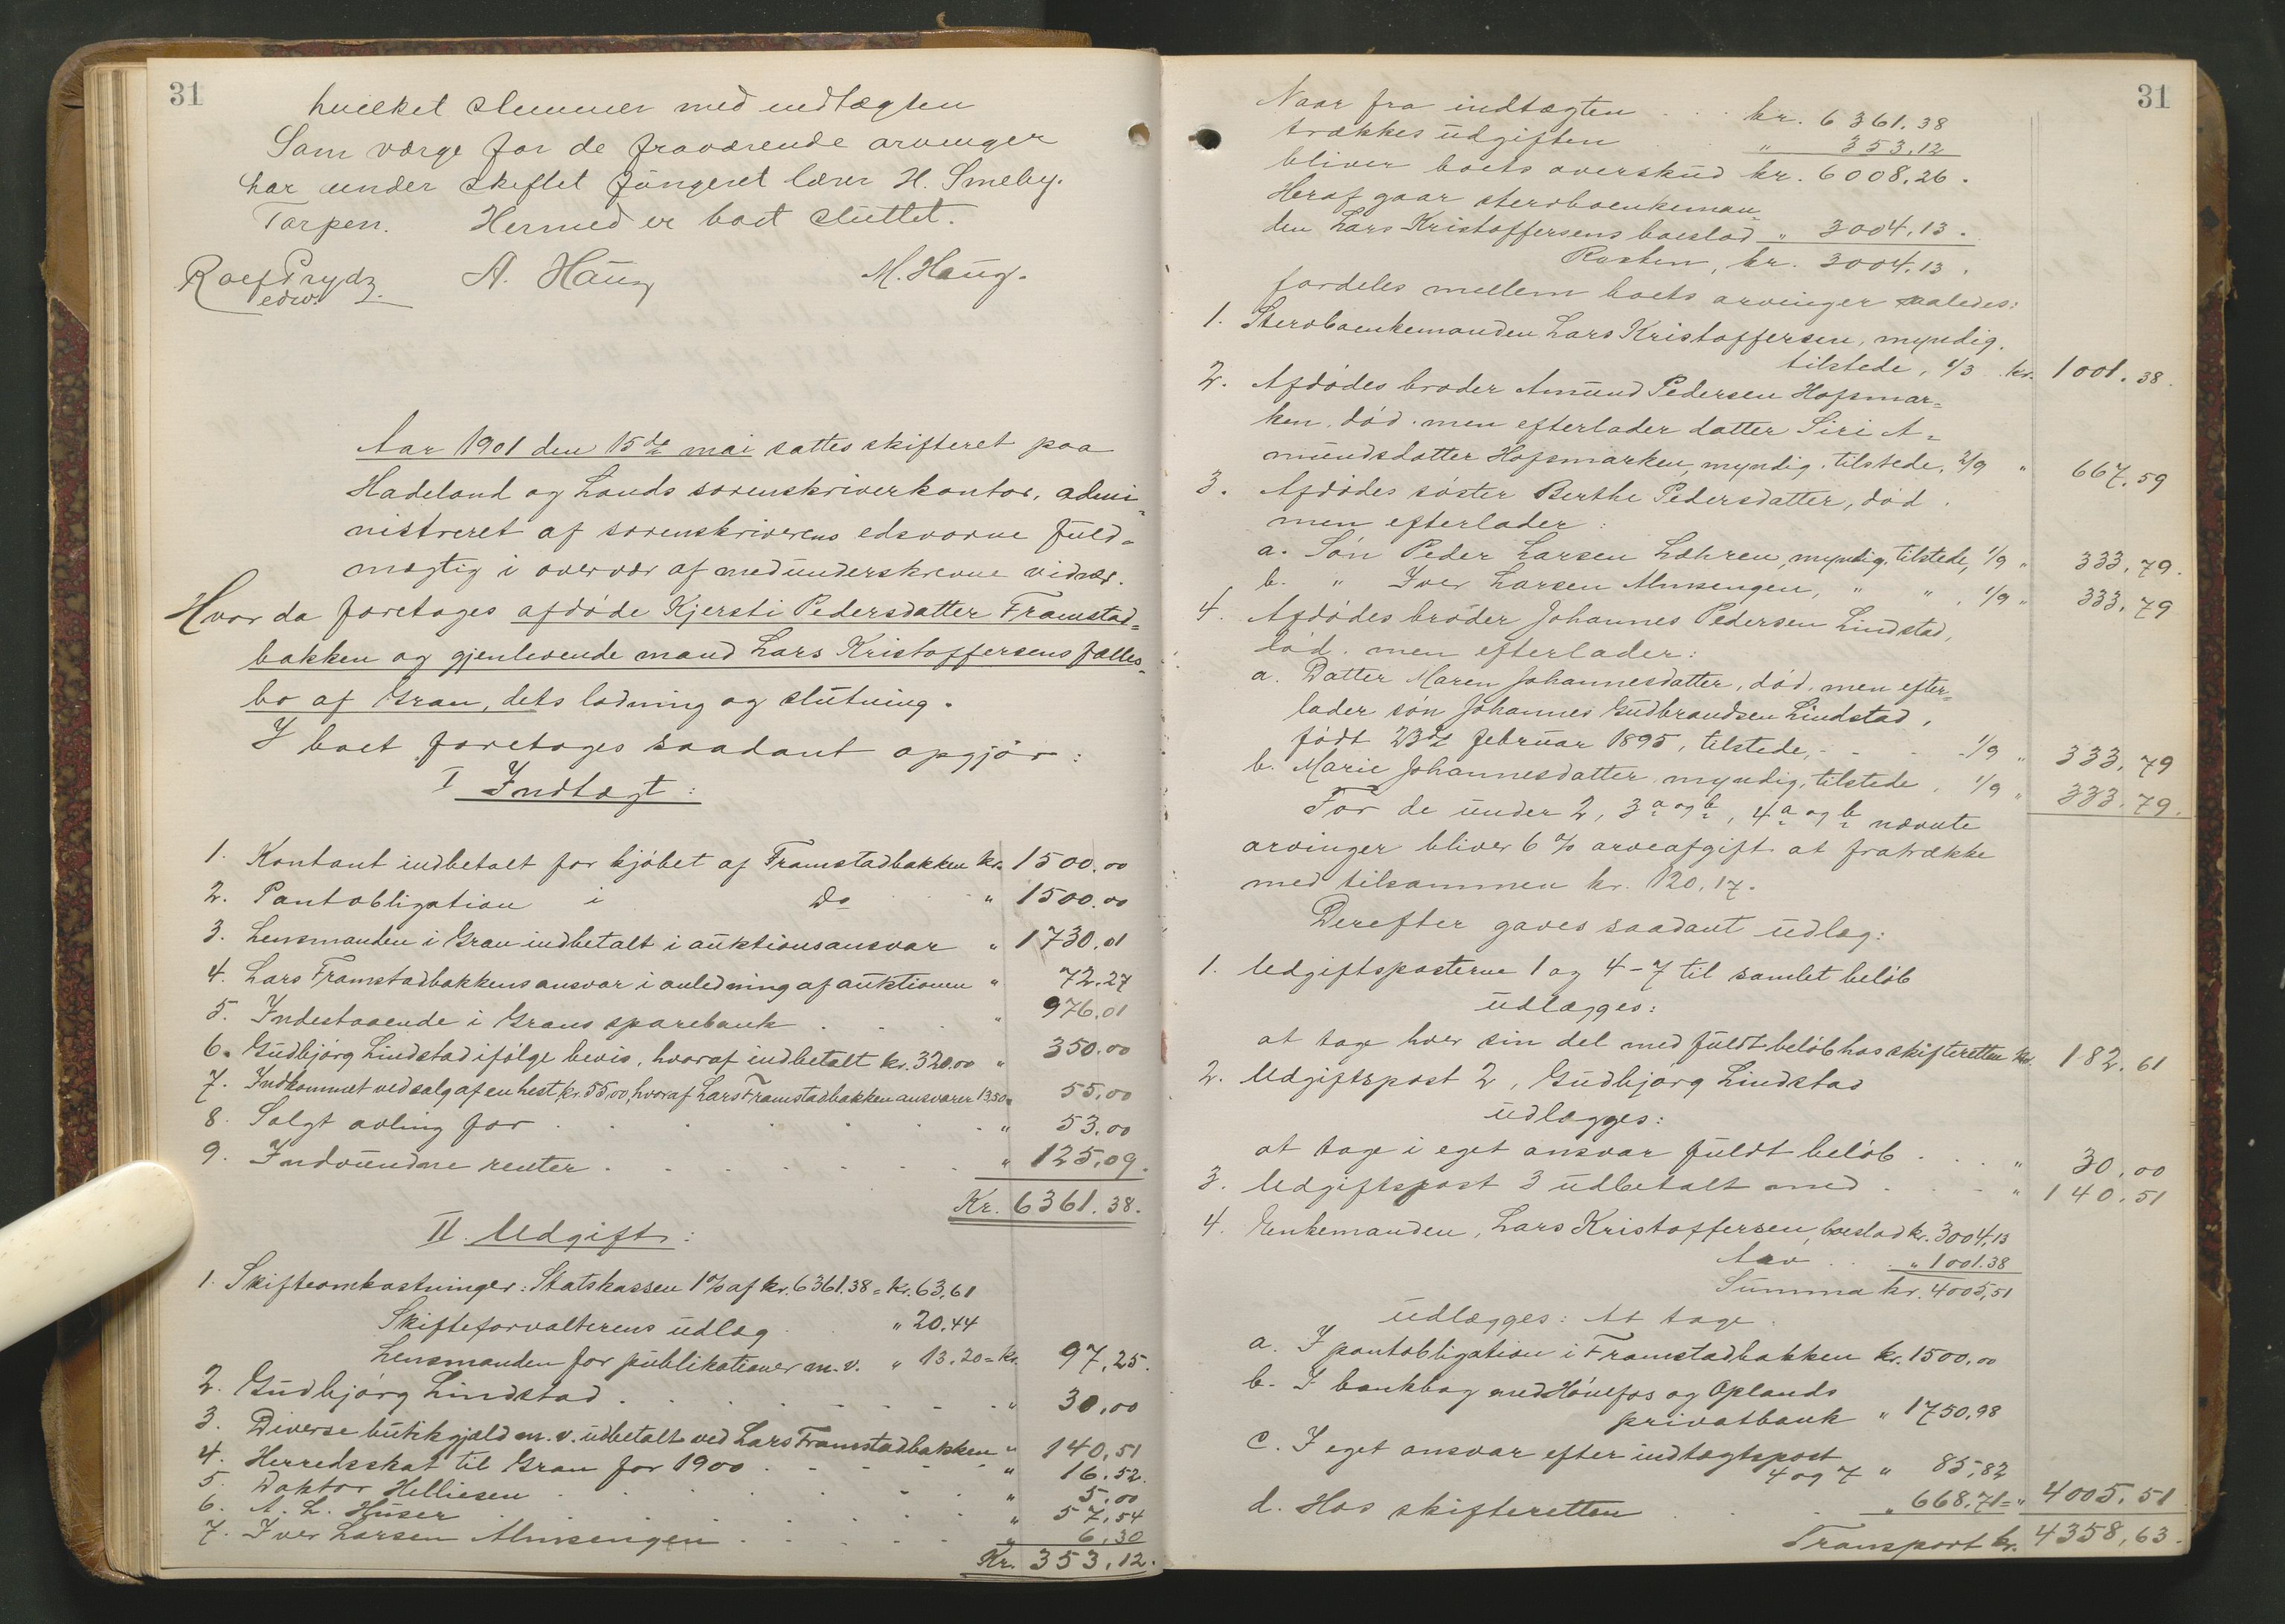 31
hvilket stemmer med indtægten
Som værge for de fraværende arvinger
har under skiftet fungeret lærer H. Smeby.
Torpen. Hermed er boet sluttet.
Rolf Prydz A. Haug M. Haug.
edsv.
Aar 1901 den 15de mai sattes skifteret paa
Hadeland og Lands sorenskriverkontor, admi-
nistreret af sorenskriverens edsvorne fuld-
mægtig i overvær af medunderskrevne vidner.
Hvor da foretoges afdøde Kjersti Pedersdatter Framstad-
bakken og gjenlevende mand Lars Kristoffersens fælles-
bo af Gran, dets lodning og slutning.
I boet foretoges saadant opgjør:
I Indtægt:
1. Kontant indbetalt for kjøbet af Framstadbakken kr. 1500.00
2. Pantobligation i Do " 1500.00
3. Lensmanden i Gran indbetalt i auktionsansvar " 1730.01
4. Lars Framstadbakkens ansvar i anledning af auktionen " 72.27
5. Indestaaende i Grans sparebank . . . " 976.01
6. Gudbjørg Lindstad ifølge bevis, hvoraf indbetalt kr. 320.00 " 350.00
7. Indkommet ved salg af en hest, kr. 55,00, hvoraf Lars Framstadbakken ansvarer 13,50 " 55,00
8. Solgt avling for . . . . . . " 53.00
9. Indvundne renter . . . . . . " 125,09.
Kr. 6361.38.
II. Udgift:
1. Skifteomkostninger: Statskassen 1% af kr. 6361.38 = kr. 63,61
Skifteforvalterens udlæg . " 20.44
Lensmanden for publikationer m. v. " 13.20 = kr. 97,25.
2. Gudbjørg Lindstad . . . . . . " 30,00
3. Diverse butikgjæld m. v. udbetalt ved Lars Framstadbakken " 140,51
4. Herredsskat til Gran for 1900 . . . . " 16.52.
5. Doktor Helliesen . . . . . . " 5,00
6. A. L. Huser . . . . . . " 57,54
7. Iver Larsen Almsengen . . . . . " 6,30
Kr. 353,12.
31
Naar fra indtægten . . . kr. 6361.38
trækkes udgiften " 353,12
bliver boets overskud kr. 6008,26.
Heraf gaar sterboenkeman
den Lars Kristoffersens boeslod " 3004,13.
Resten, kr. 3004,13.
fordeles mellem boets arvinger saaledes:
1. Sterboenkemanden Lars Kristoffersen, myndig.
tilstede, 1/3 kr. 1001.38.
2. Afdødes broder Amund Pedersen Hofsmar-
ken, død. men efterlader datter Siri A-
mundsdatter Hofsmarken, myndig. tilstede, 2/9 " 667,59
3. Afdødes søster Berthe Pedersdatter, død.
men efterlader:
a. Søn Peder Larsen Læhren, myndig, tilstede, 1/9 " 333,79.
b. " Iver Larsen Almsengen, " " . 1/9 " 333,79
4. Afdødes broder Johannes Pedersen Lindstad,
død. men efterlader:
a. Datter Maren Johannesdatter, død, men efter-
lader søn Johannes Gudbrandsen Lindstad,
født 23de februar 1895, tilstede, - - - 1/9 " 333,79
b. Marie Johannesdatter, myndig, tilstede, 1/9 " 333,79.
For de under 2, 3 a og b, 4 a og b nævnte
arvinger bliver 6% arveafgift at fratrække
med tilsammen kr. 120,17.
Derefter gaves saadant udlæg:
1. Udgiftsposterne 1 og 4-7 til samlet beløb
udlægges:
at tage hver sin del med fuldt beløb hos skifteretten kr. 182,61
2. Udgiftspost 2, Gudbjørg Lindstad
udlægges:
at tage i eget ansvar fuldt beløb . . . " 30,00
3. Udgiftspost 3 udbetalt med . . . " 140,51
4. Enkemanden, Lars Kristoffersen, boeslod kr. 3004,13
Arv . . . " 1001.38
Summa kr. 4005,51
udlægges: At tage:
a. I pantobligation i Framstadbakken kr. 1500,00
b. I bankbog med Hønefos og Oplands
privatbank " 1750,98
c. I eget ansvar efter indtægtspost
4 og 7 " 85,82
d. Hos skifteretten . . . " 668,71 = " 4005,51
Transport kr. 4358,63.